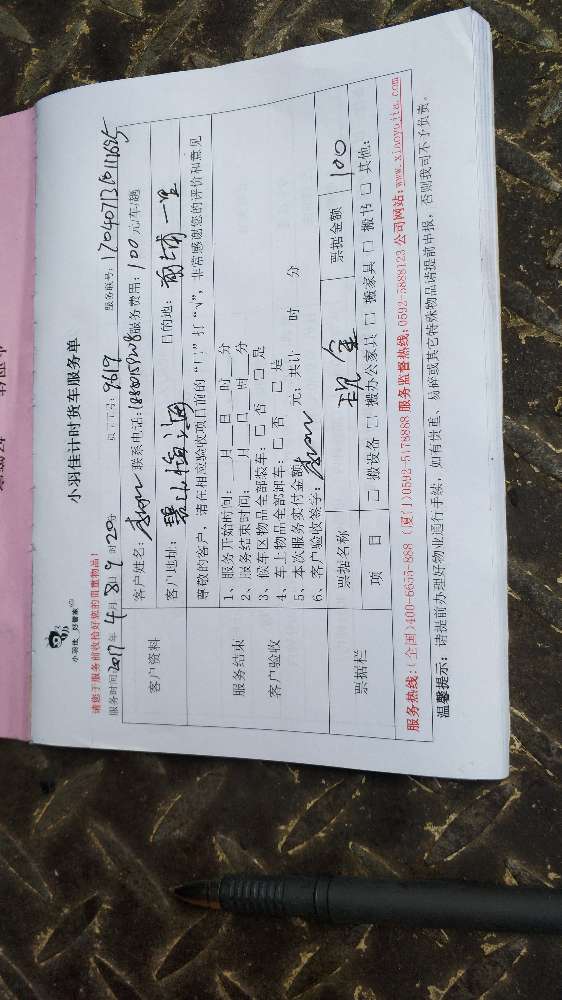 小羽佳计时货车服务单
小羽佳 好管家
请您于服务前收拾好您的贵重物品！
服务时间: 2017年4月8日9时20分 员工工号: 9619 服务账号: 17040713
客户资料
客户姓名: 联系电话: 服务费用: 100元/车/趟
客户地址: 碧山 目的地: 一里
服务结束
客户验收
尊敬的客户，请在相应验收项目前的“口”打“√”，非常感谢您的评价和意见
1、服务开始时间: 月 日 时 分
2、服务结束时间: 月 日 时 分
3、候车区物品全部装车: 口 否 口 是
4、车上物品全部卸车: 口 否 口 是
5、本次服务实付金额: 元; 共计 时 分
6、客户验收签字:
票据栏
票据名称 现金 票据金额 100
项 目 口 搬设备 口 搬办公家具 口 搬家具 口 搬书 口 其他:
服务热线: (全国)400-6655-888 (厦门)0592-5178888 服务监督热线: 0592-5888123 公司网站: www.xiaoyujia.com
温馨提示: 请提前办理好物业通行手续，如有贵重、易碎或其它特殊物品请提前申报，否则我司不予负责。